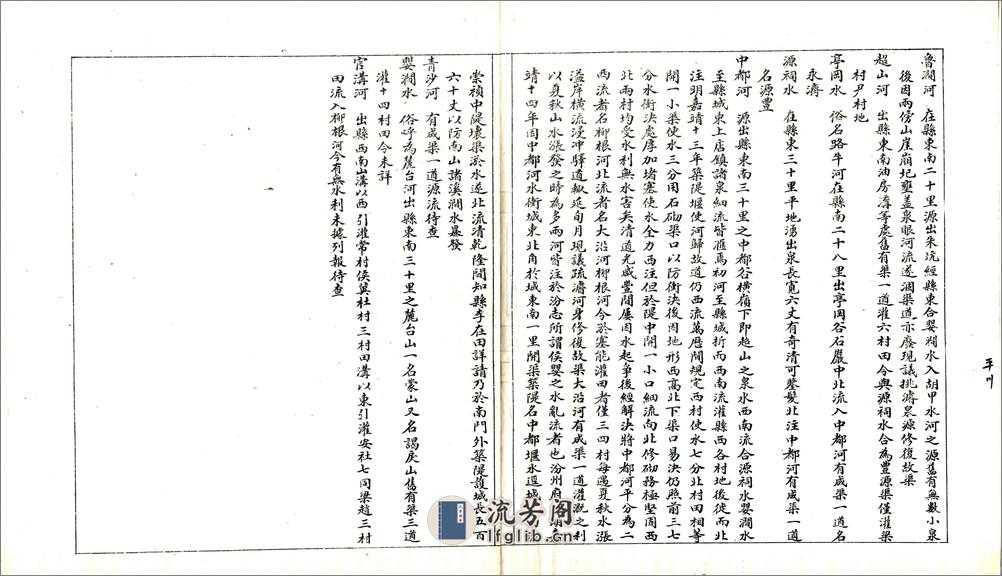 魯澗河　在縣東南二十里源出朱坑經縣東合嬰澗水入胡甲水河之源舊有無數小泉
後因兩傍山崖崩圮壅蓋泉眼河流遂涸渠道亦廢現議挑濬泉源修復故渠
超山河　出縣東南油房溝等處舊有渠一道灌六村田今與源祠水合為豐源渠僅灌梁
村尹村地
亭岡水　俗名路牛河在縣南二十八里出亭岡谷石巖中北流入中都河有成渠一道名
永濟
源祠水　在縣東三十里平地湧出泉長寬六丈有奇清可鑒髮北注中都河有成渠一道
名源豐
中都河　源出縣東南三十里之中都谷橫嶺下即超山之泉水西南流合源祠水嬰澗水
至縣城東上店鎮諸泉細流皆匯焉初河至縣城折而西南流灌縣西各村地後徙而北
注明嘉靖十三年築隄堰使河歸故道仍西流萬曆間規定西村使水七分北村田相等
開一小渠使水三分用石砌渠口以防衝決後因地形西高北下渠口易決仍照前三七
分水衝決處厚加堵塞使水全力西注但於隄中開一小口細流向北修砌務極堅固西
北兩村均受水利無水害矣清道光咸豐間屢因水起爭後經解決將中都河平分為二
西流者名柳根河北流者名大沿河柳根河今於塞能灌田者僅三四村每遇夏秋水漲
溢岸橫流浸沖驛道輒延旬月現議疏濬河身修復故渠大沿河有成渠一道灌溉之利
以夏秋山水漲發之時為多兩河皆注於汾志所謂侯嬰之水亂流者也汾州府
靖十四年因中都河水衝城東北角於城東南一里開渠築隄名中都堰水逕城
崇禎中隄壞渠淤水遂北流清乾隆間知縣李在田詳請乃於南門外築隄護城長五百
六十丈以防南山諸溪澗水暴發
青沙河　有成渠一道源流待查
嬰澗水　俗呼為麓台河出縣東南三十里之麓台山一名蒙山又名謁戾山舊有渠三道
灌十四村田今未詳
官溝河　出縣西南山溝以西引灌常村侯冀杜村三村田溝以東引灌安社七同梁趙三村
田流入柳根河今有無水利未據列報待查
平川
流芳阁
lfglib.cn